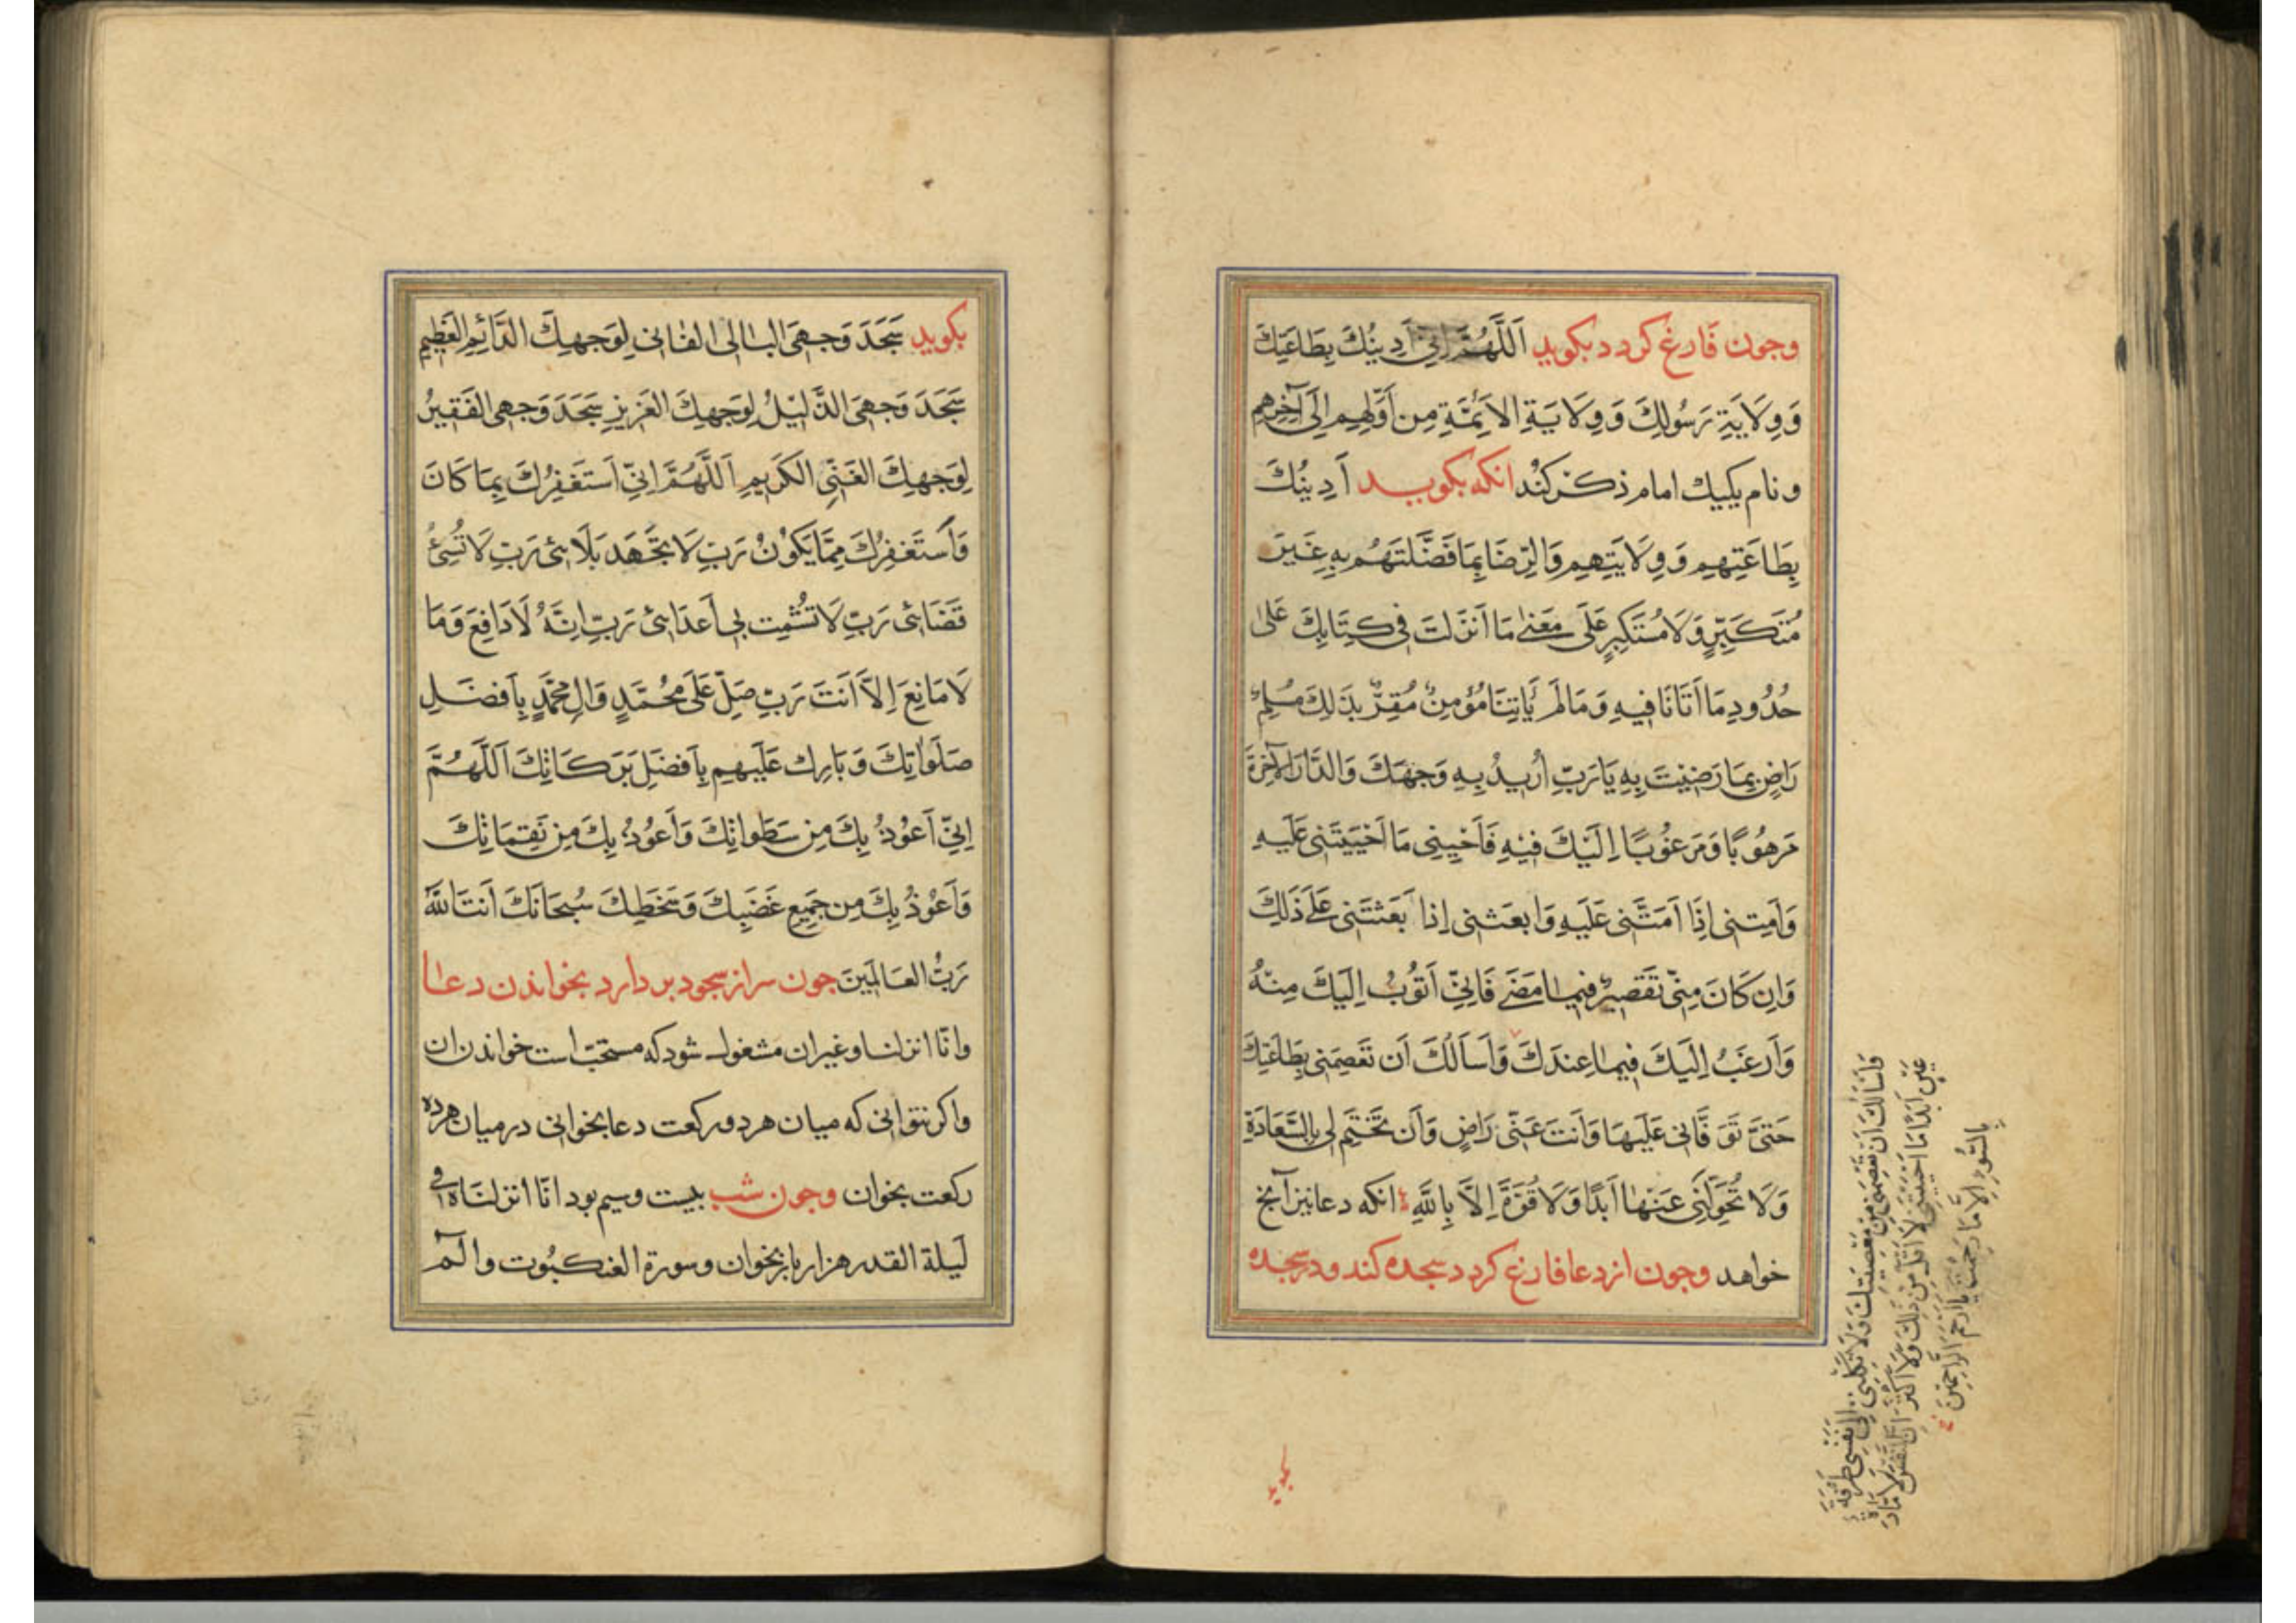 وجون فارغ کردد بکوید اَللّٰهُمَّ اِنّی اَدِینُكَ بِطَاعَتِكَ
وَوِلَایَةِ رَسُولِكَ وَوِلَایَةِ الاَئِمَّةِ مِن اَوَّلِهِم اِلَی آخِرِهِم
و نام یکیك امام ذکر کنُد انکه بکوید اَدِینُكَ
بِطَاعَتِهِم وَوِلَایَتِهِم وَالرِّضَا بِمَا فَضَّلتَهُم بِهِ غَیرَ
مُتَکَبِّرٍ وَلَا مُستَکبِرٍ عَلَی مَعنٰی مَا اَنزَلتَ فی کِتَابِكَ عَلٰی
حُدُودِ مَا اَتَانَا فِیهِ وَمَا لَم یَاتِنَا مُؤمِنٌ مُقِرٌّ بِذَلِكَ مُسلِمٌ
رَاضٍ بِمَا رَضِیتَ بِهِ یَا رَبِّ اُرِیدُ بِهِ وَجهَكَ وَالدَّارَ الآخِرَةَ
مَرهُوبًا وَمَرغُوبًا اِلَیكَ فِیهِ فَاَحیِنِی مَا اَحیَیتَنِی عَلَیهِ
وَاَمِتنِی اِذَا اَمَتَّنِی عَلَیهِ وَابعَثنِی اِذَا بَعَثتَنِی عَلٰی ذٰلِكَ
وَاِن کَانَ مِنّی تَقصِیرٌ فِیمَا مَضَی فَاِنّی اَتُوبُ اِلَیكَ مِنهُ
وَاَرغَبُ اِلَیكَ فِیمَا عِندَكَ وَاَسَالُكَ اَن تَعصِمَنِی بِطَاعَتِكَ
حَتَّی تَوَفَّانِی عَلَیهَا وَاَنتَ عَنّی رَاضٍ وَاَن تَختِمَ لِی بِالسَّعَادَةِ
وَلَا تُحَوِّلَنِی عَنهَا اَبَدًا وَلَا قُوَّةَ اِلَّا بِاللّٰهِ انکه دعا نیز آنج
خواهد وجون از دعا فارغ کردد سجده کند و در سجده
وَاَسَالُكَ اَن تَعصِمَنِی مِن مَعصِیَتِكَ وَلَا تَکِلنِی اِلَی نَفسِی طَرفَةَ
عَینٍ اَبَدًا مَا اَحیَیتَنِی لَا اَقَلَّ مِن ذٰلِكَ وَلَا اَکثَرَ اِنَّ النَّفسَ لَاَمَّارَةٌ
بِالسُّوءِ اِلَّا مَا رَحِمتَ یَا اَرحَمَ الرَّاحِمِینَ
بکوید
بکوید سَجَدَ وَجهِیَ البَالِی الفَانِی لِوَجهِكَ الدَّائِمِ العَظِیمِ
سَجَدَ وَجهِیَ الذَّلِیلُ لِوَجهِكَ العَزِیزِ سَجَدَ وَجهِی الفَقِیرُ
لِوَجهِكَ الغَنِیِّ الکَرِیمِ اَللّٰهُمَّ اِنّی اَستَغفِرُكَ بِمَا کَانَ
وَاَستَغفِرُكَ مِمَّا یَکُونُ رَبِّ لَا تَجهَد بَلَائِی رَبِّ لَا تُسِیُٔ
قَضَائِی رَبِّ لَا تُشمِت بِی اَعدَائِی رَبِّ اِنَّهُ لَا دَافِعَ وَمَا
لَا مَانِعَ اِلَّا اَنتَ رَبِّ صَلِّ عَلَی مُحَمَّدٍ وَآلِ مُحَمَّدٍ بِاَفضَلِ
صَلَوَاتِكَ وَبَارِك عَلَیهِم بِاَفضَلِ بَرَکَاتِكَ اَللّٰهُمَّ
اِنّی اَعُوذُ بِكَ مِن سَطَوَاتِكَ وَاَعُوذُ بِكَ مِن نَقِمَاتِكَ
وَاَعُوذُ بِكَ مِن جَمِیعِ غَضَبِكَ وَسَخَطِكَ سُبحَانَكَ اَنتَ اللّٰهُ
رَبُّ العَالَمِینَ جون سر از سجود بر دارد بخواندن دعا
وانّا انزلنا وغیر ان مشغول شود که مستحبّ است خواندن ان
واکر نتوانی که میان هر دو رکعت دعا بخوانی در میان هر ده
رکعت بخوان وجون شب بیست وسیم بود انّا انزلناه فی
لَیلة القدر هزار بار بخوان وسورة العنکبُوت والٓم